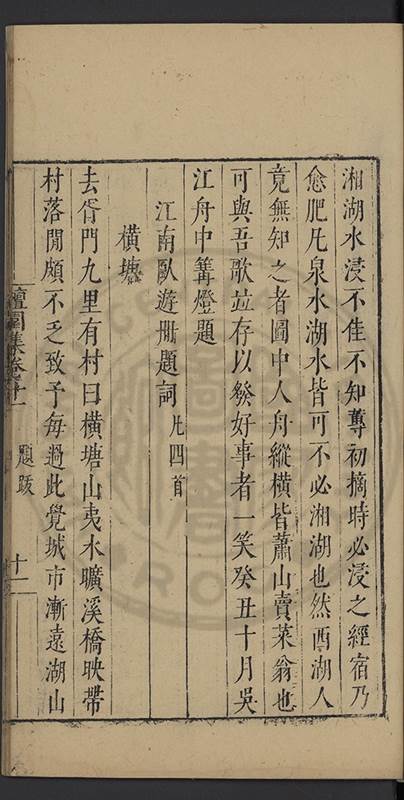 湘湖水浸不佳不知蓴初摘時必浸之經宿乃
愈肥凡泉水湖水皆可不必湘湖也然西湖人
竟無知之者圖中人舟縱橫皆蕭山賣菜翁也
可與吾歌並存以發好事者一笑癸丑十月吳
江舟中篝燈題
江南臥遊册題詞 凡四首
橫塘
去胥門九里有村曰橫塘山夷水曠溪橋映帶
村落閒頗不乏致予每過此覺城市漸遠湖山
檀園集卷十一
題跋
十一